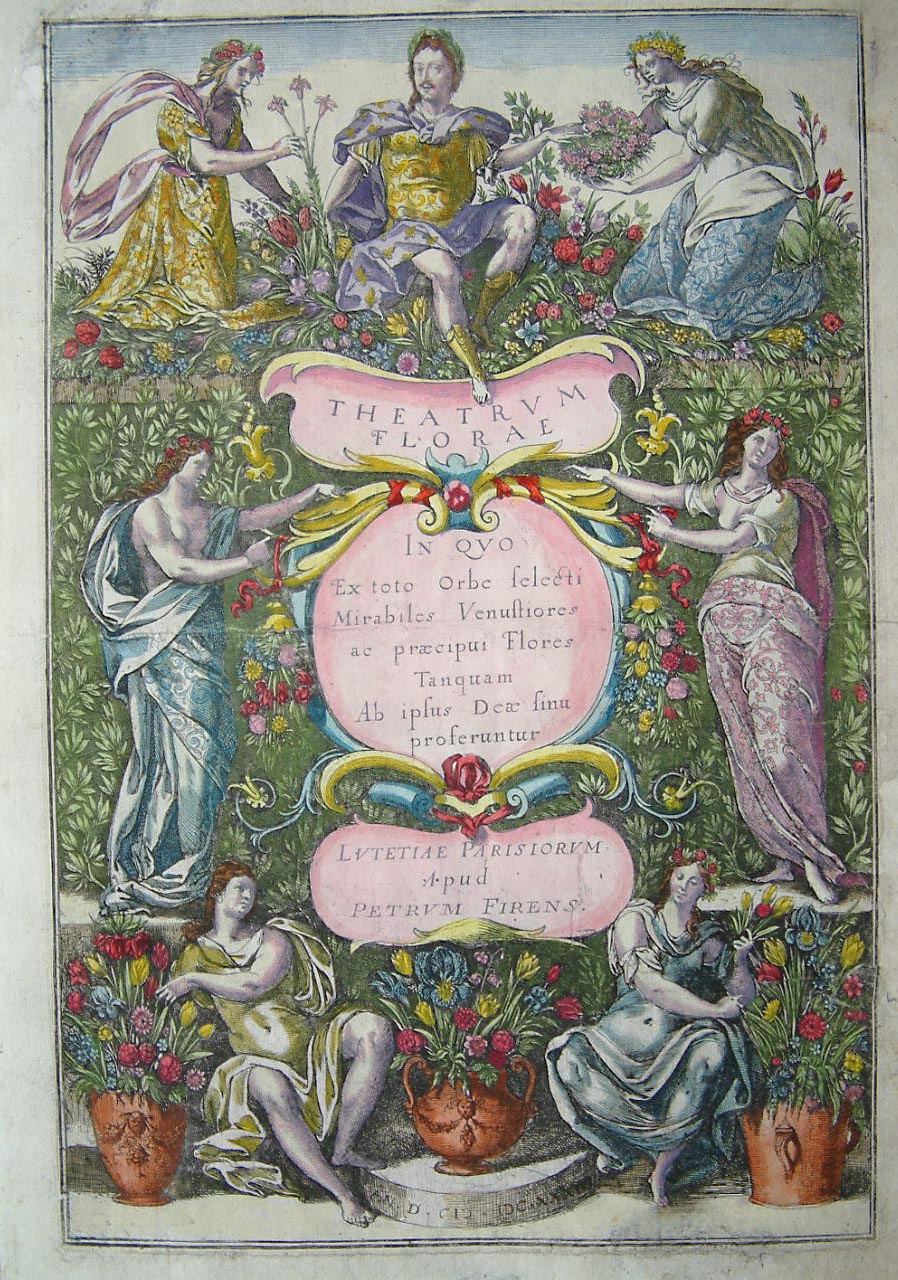 THEATRVM
FLORAE
IN QVO
Ex toto Orbe selecti
Mirabiles Venustiores
ac præcipui Flores
Tanquam
Ab ipsus Deæ sinu
proferuntur
LVTETIAE PARISIORVM.
Apud
PETRVM FIRENS.
D. CIƆ.